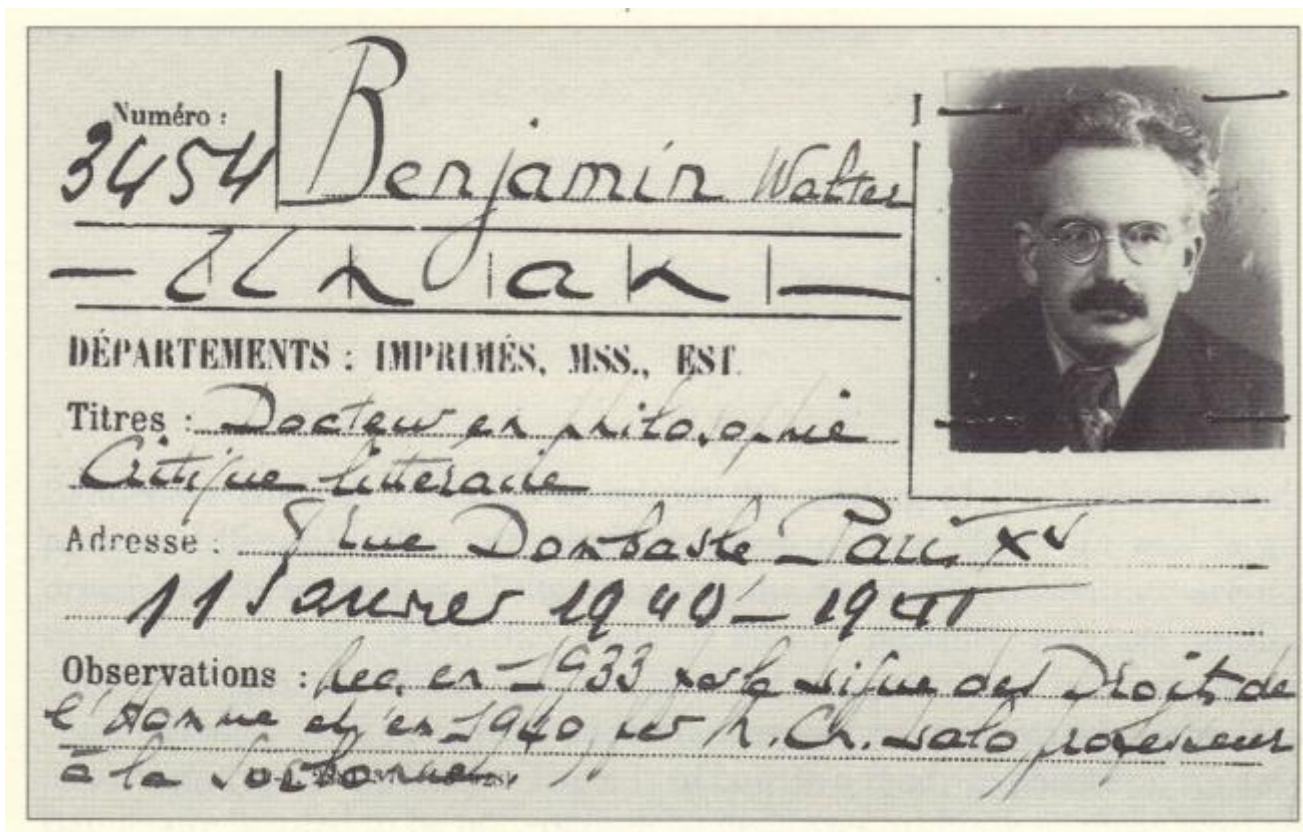 Numéro :
3454 Benjamin Walter
Un an
DÉPARTEMENTS : IMPRIMÉS, MSS., EST.
Titres : Docteur en philosophie
Critique littéraire
Adresse : rue Dombasle Paris XV
11 Janvier 1940 - 1941
Observations : Rec. en 1933 par la Ligue des Droits de
l'Homme et en 1940, par M. Ch. Lalo professeur
à la Sorbonne